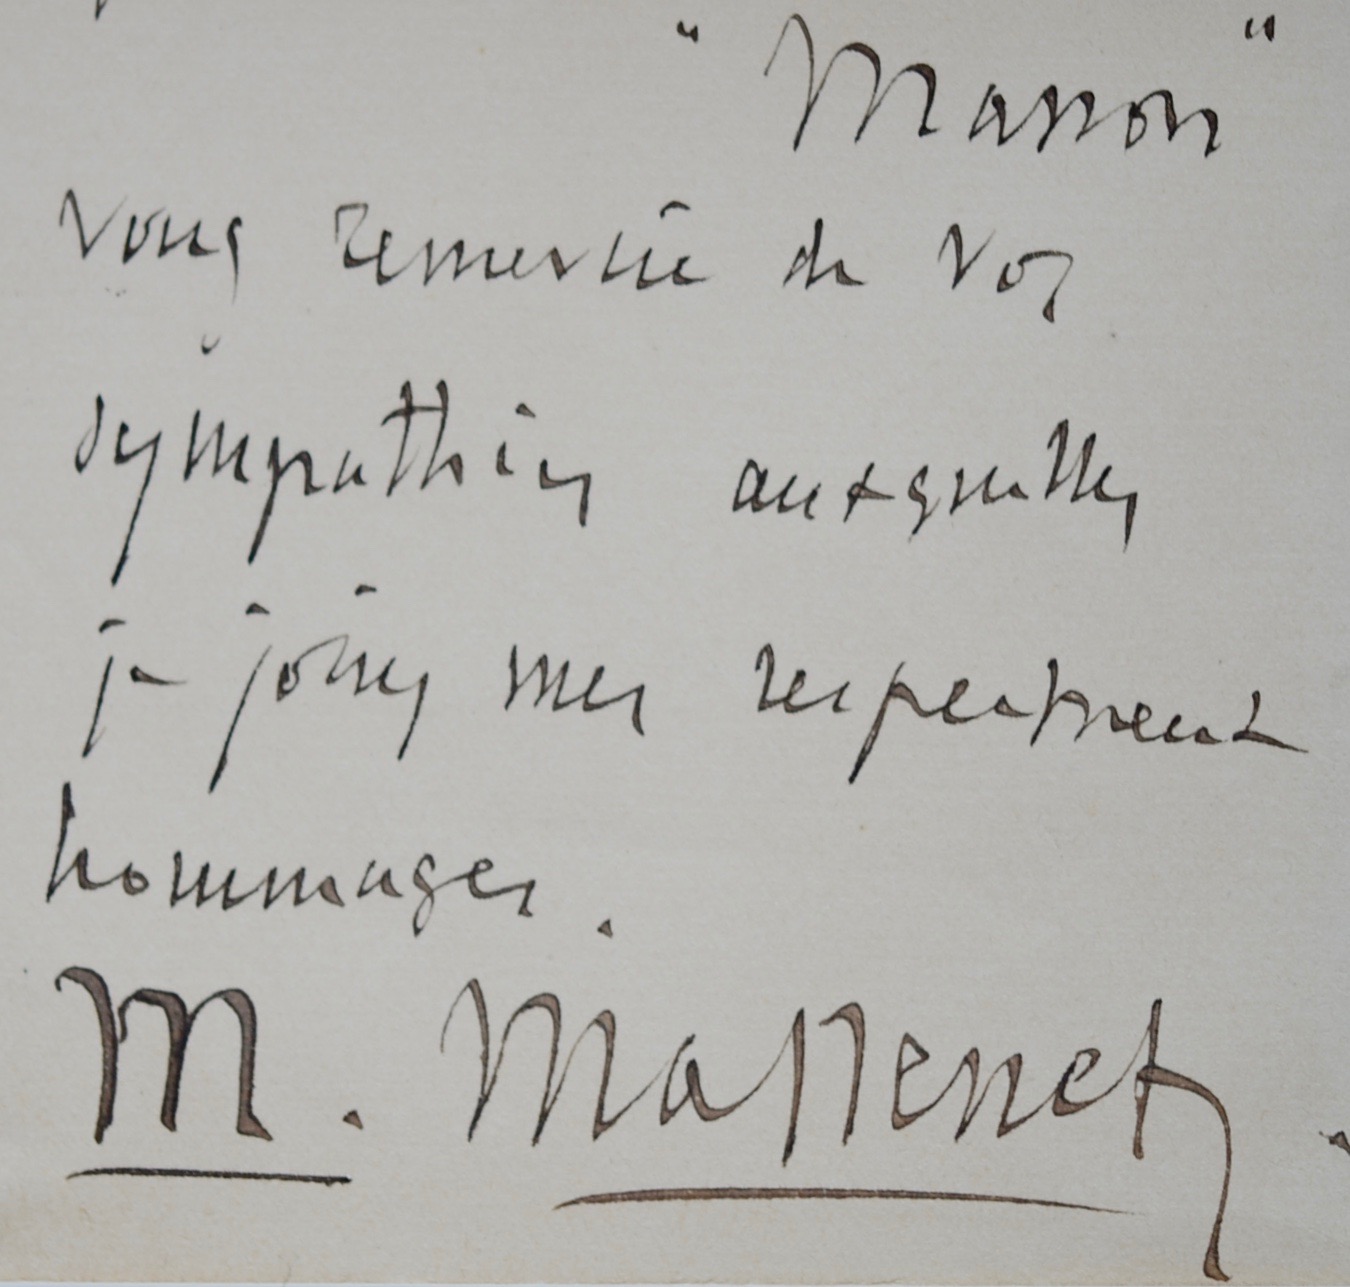 " Manon "
vous remercie de vos
sympathies auxquelles
je joins mes respectueux
hommages.
M. Massenet.